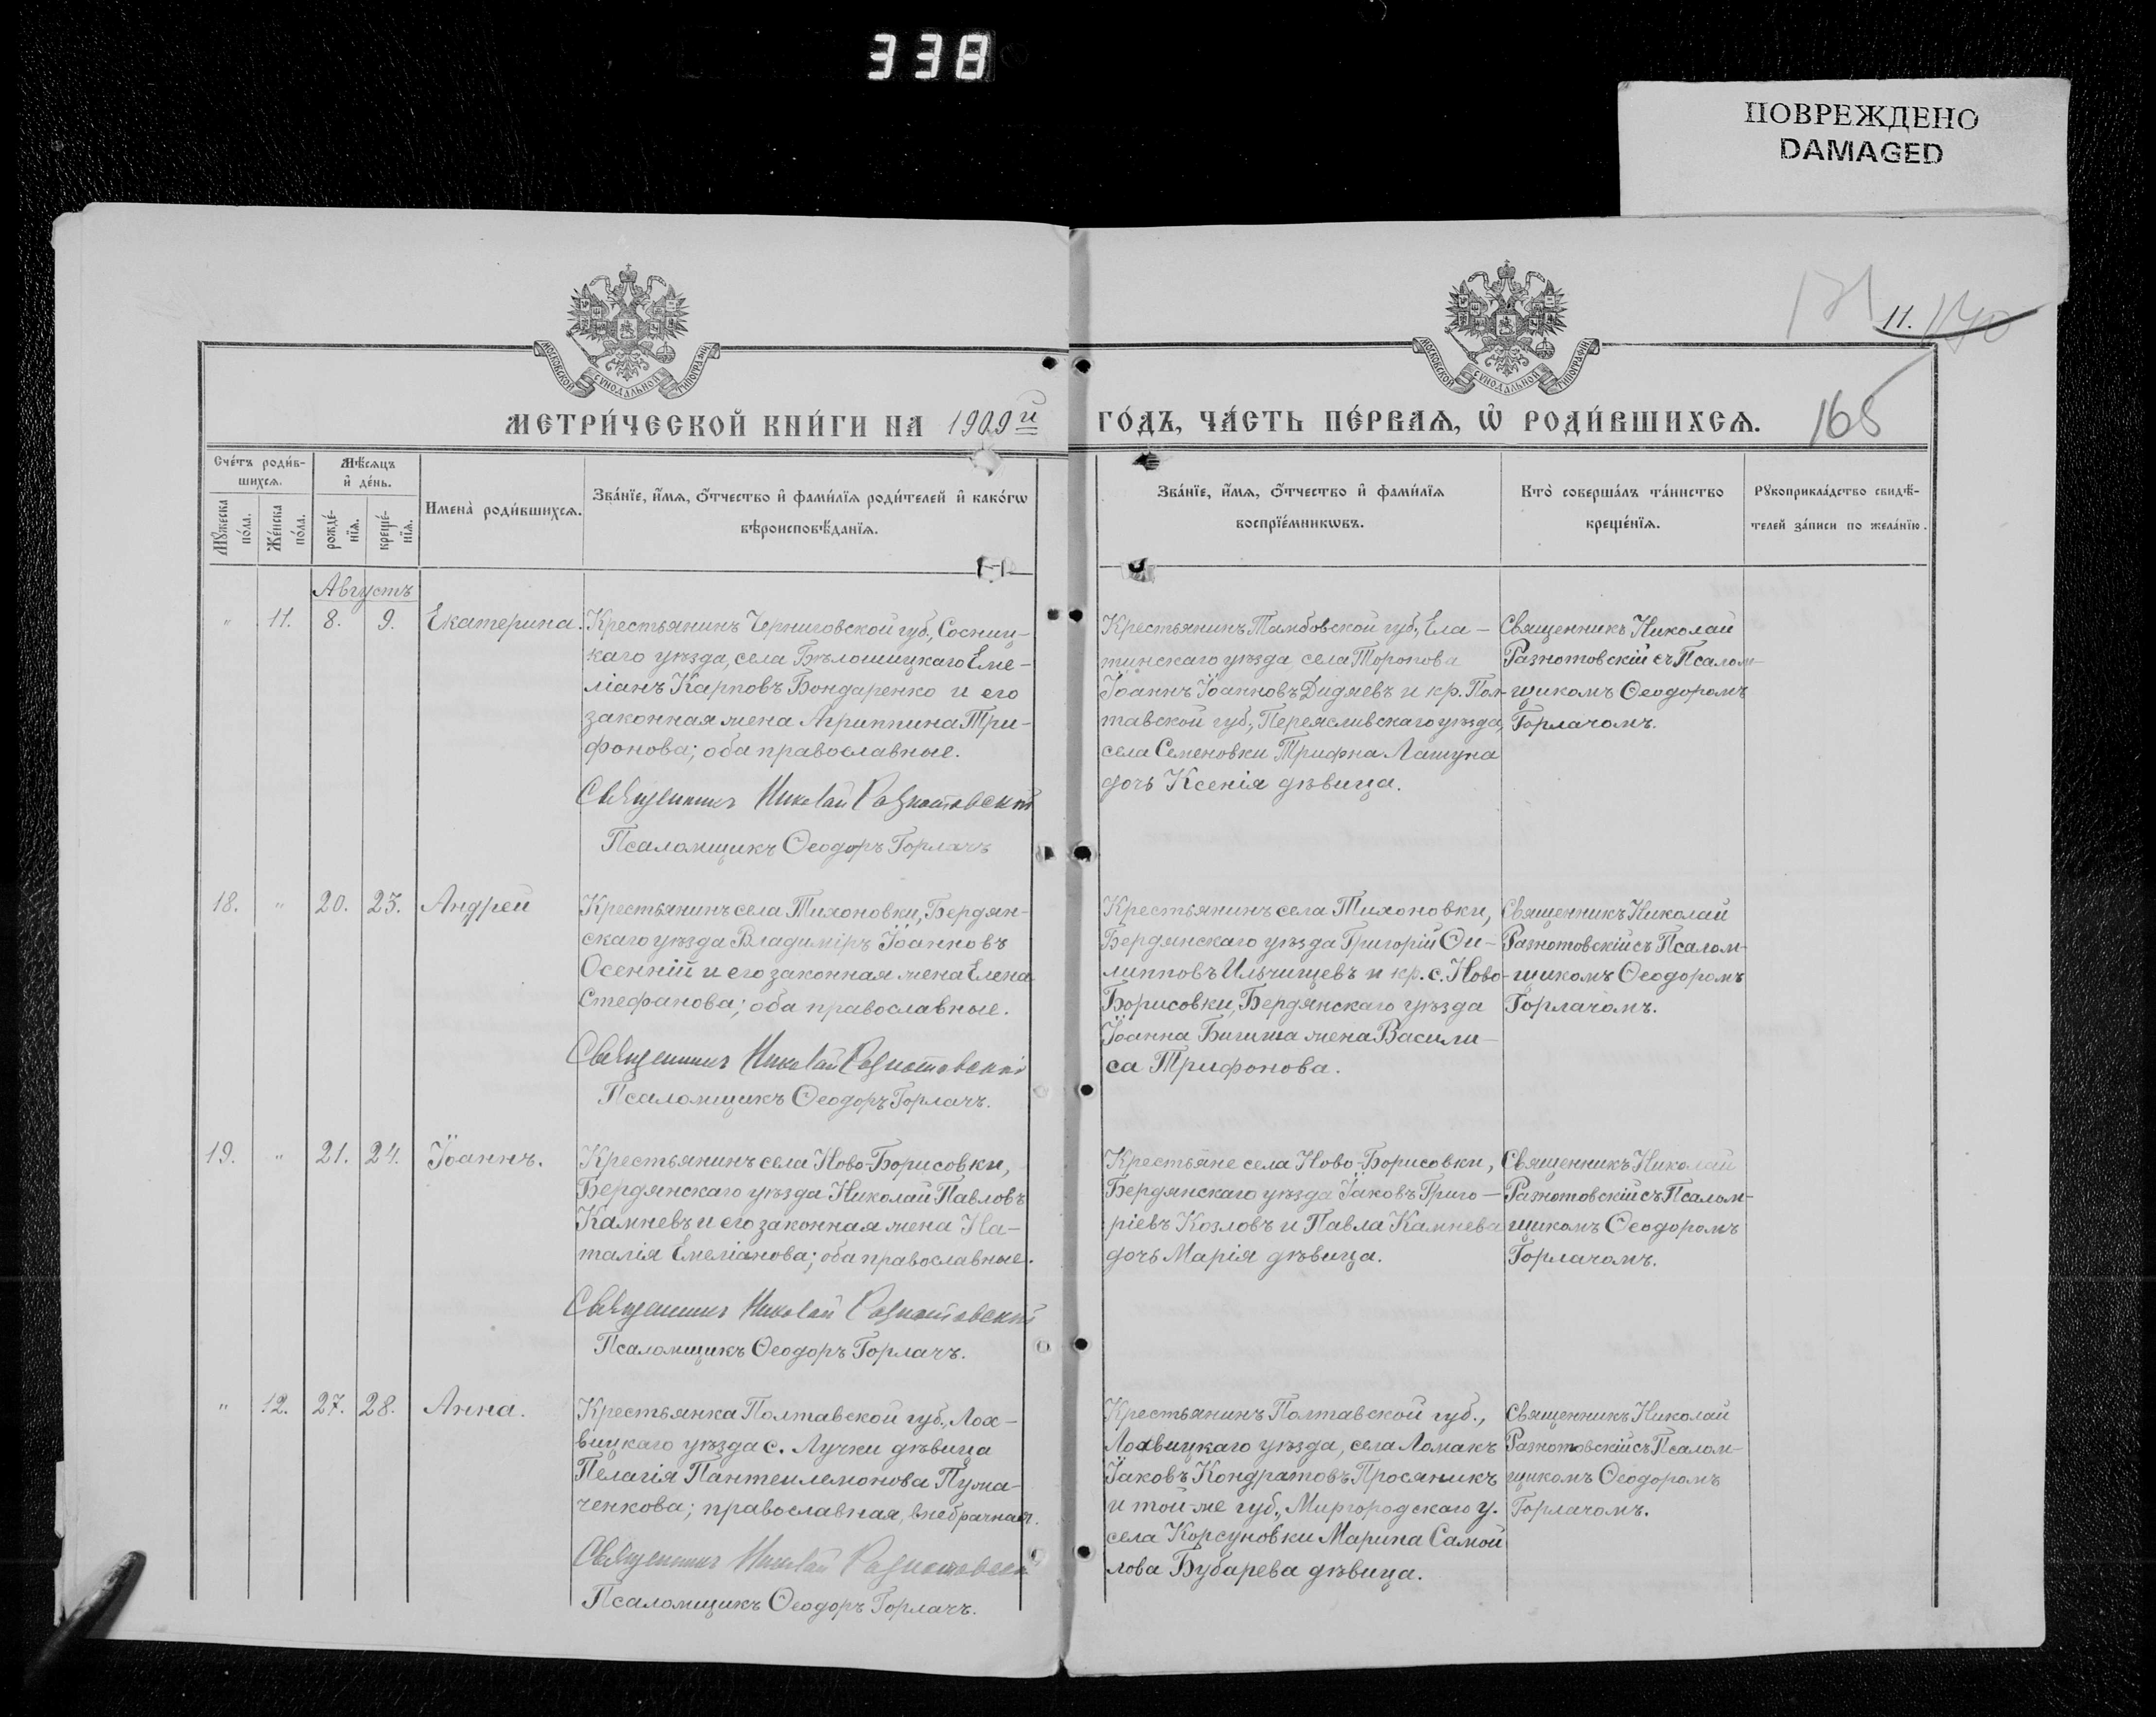 338
ПОВРЕЖДЕНО
DAMAGED
11.
165
МОСКОВСКОЙ СѴНОДАЛЬНОЙ ТИПОГРАФІИ
МОСКОВСКОЙ СѴНОДАЛЬНОЙ ТИПОГРАФІИ
МЕТРИ́ЧЕСКОЙ КНИ́ГИ НА 1909й ГО́ДЪ, ЧА́СТЬ ПЕ́РВАѦ, Ѡ҆ РОДИ́ВШИХСѦ.
Сче́тъ роди́в-
шихсѧ.
Мꙋ́жеска по́ла.
Же́нска по́ла.
Мѣ́сѧцъ
и҆ де́нь.
рожде́-
нїѧ.
креще́-
нїѧ.
И҆мена̀ роди́вшихсѧ.
Зва́нїе, и҆́мѧ, ѻ҆́тчество и҆ фами́лїѧ роди́телей и҆ како́гѡ
вѣроисповѣ́данїѧ.
Зва́нїе, и҆́мѧ, ѻ҆́тчество и҆ фами́лїѧ
воспрїе́мникѡвъ.
Кто̀ соверша́лъ та́инство
креще́нїѧ.
Рꙋкоприкла́дство свидѣ́-
телей за́писи по жела́нїю.
Августъ
" 11. 8. 9. Екатерина.
Крестьянинъ Черниговской губ., Сосниц-
каго уѣзда, села Бѣлошицкаго Еме-
ліанъ Карповъ Бондаренко и его
законная жена Агриппина Три-
фонова; оба православные.
Священникъ Николай Разнотовскій
Псаломщикъ Ѳеодоръ Горлачъ
Крестьянинъ Тамбовской губ., Ела-
тинскаго уѣзда села Торопова
Іоаннъ Іоанновъ Дидяевъ и кр. Пол-
тавской губ., Переяславскаго уѣзда,
села Семеновки Трифна Лашуна
дочь Ксенія дѣвица.
Священникъ Николай
Разнотовскій съ Псалом-
щикомъ Ѳеодоромъ
Горлачомъ.
18. " 20. 23. Андрей
Крестьянинъ села Тихоновки, Бердян-
скаго уѣзда Владиміръ Іоанновъ
Осенній и его законная жена Елена
Стефанова; оба православные.
Священникъ Николай Разнотовскій
Псаломщикъ Ѳеодоръ Горлачъ.
Крестьянинъ села Тихоновки,
Бердянскаго уѣзда Григорій Фи-
липповъ Ильчищевъ и кр. с. Ново-
Борисовки, Бердянскаго уѣзда
Іоанна жена Васили-
са Трифонова.
Священникъ Николай
Разнотовскій съ Псалом-
щикомъ Ѳеодоромъ
Горлачомъ.
19. " 21. 24. Іоаннъ.
Крестьянинъ села Ново-Борисовки,
Бердянскаго уѣзда Николай Павловъ
Камневъ и его законная жена На-
талія Емеліанова; оба православные.
Священникъ Николай Разнотовскій
Псаломщикъ Ѳеодоръ Горлачъ.
Крестьяне села Ново-Борисовки,
Бердянскаго уѣзда Іаковъ Григо-
ріевъ Козловъ и Павла Камнева
дочь Марія дѣвица.
Священникъ Николай
Разнотовскій съ Псалом-
щикомъ Ѳеодоромъ
Горлачомъ.
" 12. 27. 28. Анна.
Крестьянка Полтавской губ., Лох-
вицкаго уѣзда с. Лучки дѣвица
Пелагія Пантелемонова Пужа-
ченкова; православная, внебрачная.
Священникъ Николай Разнотовскій
Псаломщикъ Ѳеодоръ Горлачъ.
Крестьянинъ Полтавской губ.,
Лохвицкаго уѣзда, села Ломакъ
Іаковъ Кондратовъ Просяникъ
и той-же губ., Миргородскаго у.
села Корсуновки Марина Самой
лова Бубарева дѣвица.
Священникъ Николай
Разнотовскій съ Псалом-
щикомъ Ѳеодоромъ
Горлачомъ.